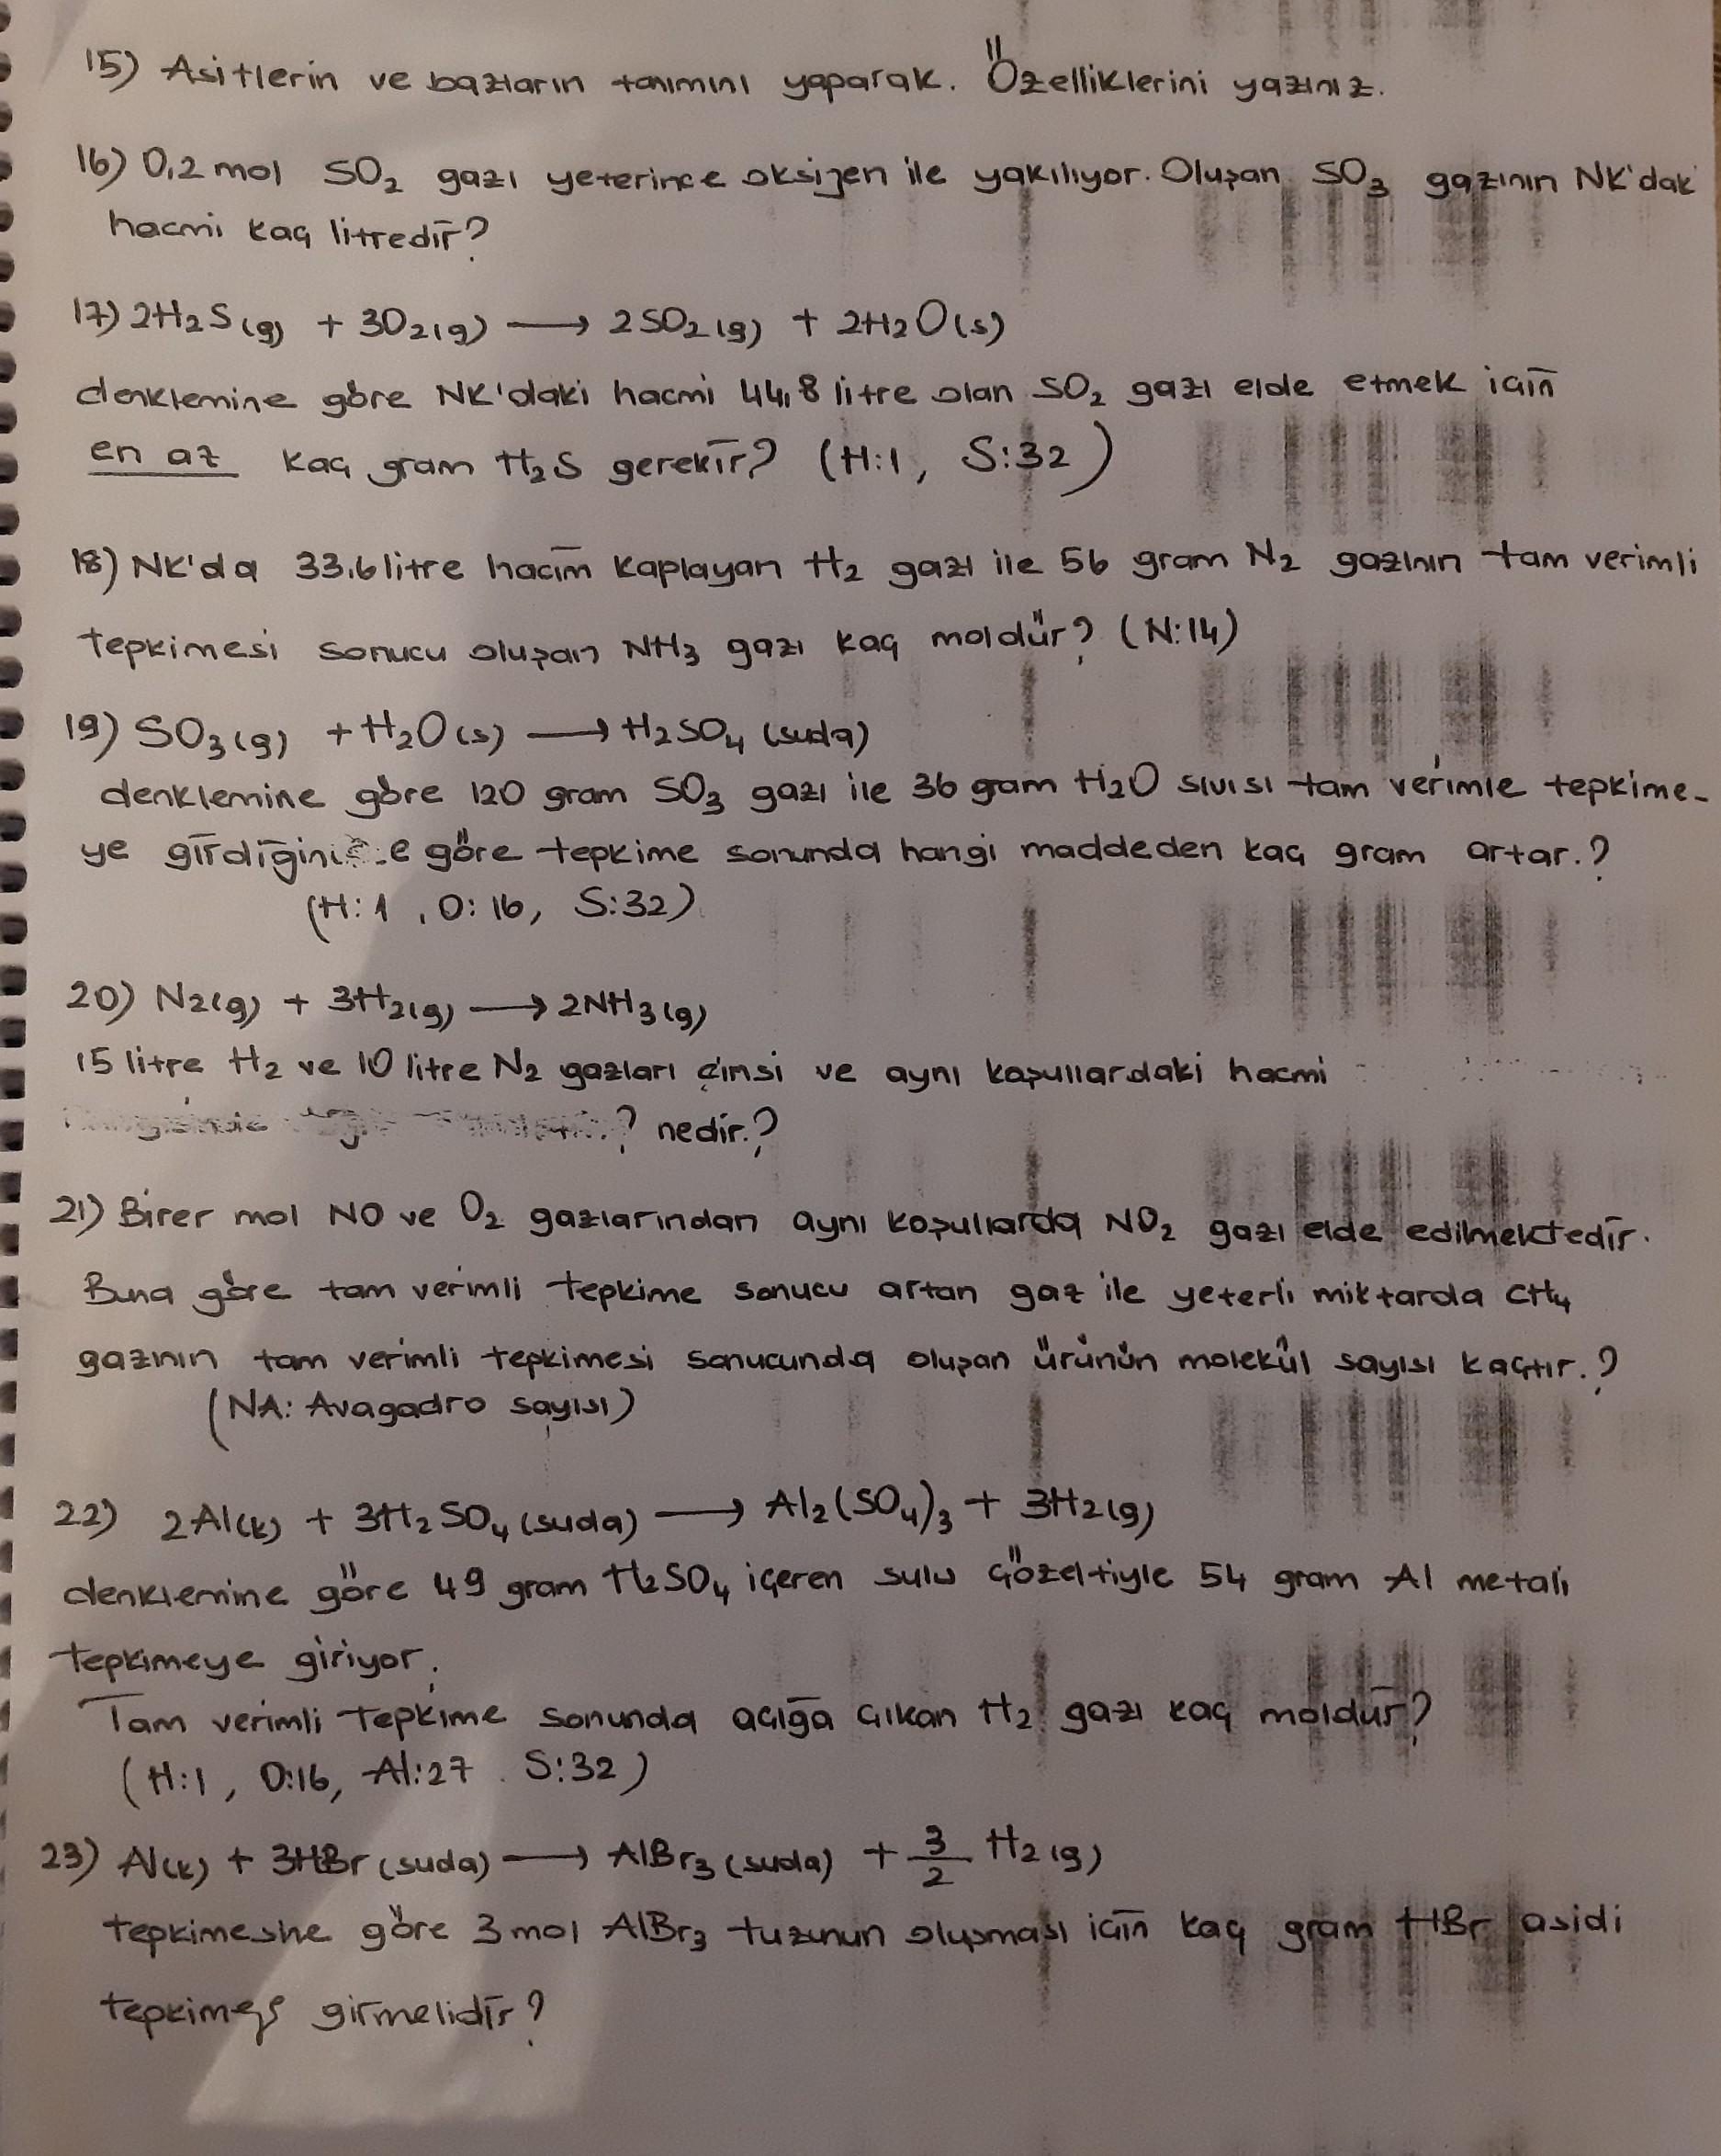 15) Asitlerin ve bazların tanımını yaparak. Özelliklerini yazınız.
16) 0,2 mol SO₂ gazı yeterince oksijen ile yakılıyor. Oluşan SO₃ gazının NK'dak
hacmi kaç litredir?
17) 2H₂S(g) + 3O₂(g) → 2SO₂(g) + 2H₂O(s)
denklemine göre NK'daki hacmi 44,8 litre olan SO₂ gazı elde etmek için
en az kaç gram H₂S gerekir? (H:1, S:32)
18) NK'da 33,6 litre hacim kaplayan H₂ gazı ile 56 gram N₂ gazının tam verimli
tepkimesi sonucu oluşan NH₃ gazı kaç moldür? (N:14)
19) SO₃(g) + H₂O(s) → H₂SO₄(suda)
denklemine göre 120 gram SO₃ gazı ile 36 gram H₂O sıvısı tam verimle tepkime-
ye göre tepkime sonunda hangi maddeden kaç gram artar.?
(H:1, O:16, S:32)
20) N₂(g) + 3H₂(g) → 2NH₃(g)
15 litre H₂ ve 10 litre N₂ gazları cinsi ve aynı koşullardaki hacmi
nedir.?
21) Birer mol NO ve O₂ gazlarından aynı koşullarda NO₂ gazı elde edilmektedir.
Buna göre tam verimli tepkime sonucu artan gaz ile yeterli miktarda CH₄
gazının tam verimli tepkimesi sonucunda oluşan ürünün molekül sayısı kaçtır.?
(NA: Avagadro sayısı)
22) 2Al(k) + 3H₂SO₄(suda) → Al₂(SO₄)₃ + 3H₂(g)
denklemine göre 49 gram H₂SO₄ içeren sulu çözeltiyle 54 gram Al metali
tepkimeye giriyor.
Tam verimli tepkime sonunda açığa çıkan H₂ gazı kaç moldür?
(H:1, O:16, Al:27 S:32)
23) Al(k) + 3HBr(suda) → AlBr₃(suda) + 3/2 H₂(g)
göre 3 mol AlBr₃ tuzunun oluşması için kaç gram HBr asidi
girmelidir?